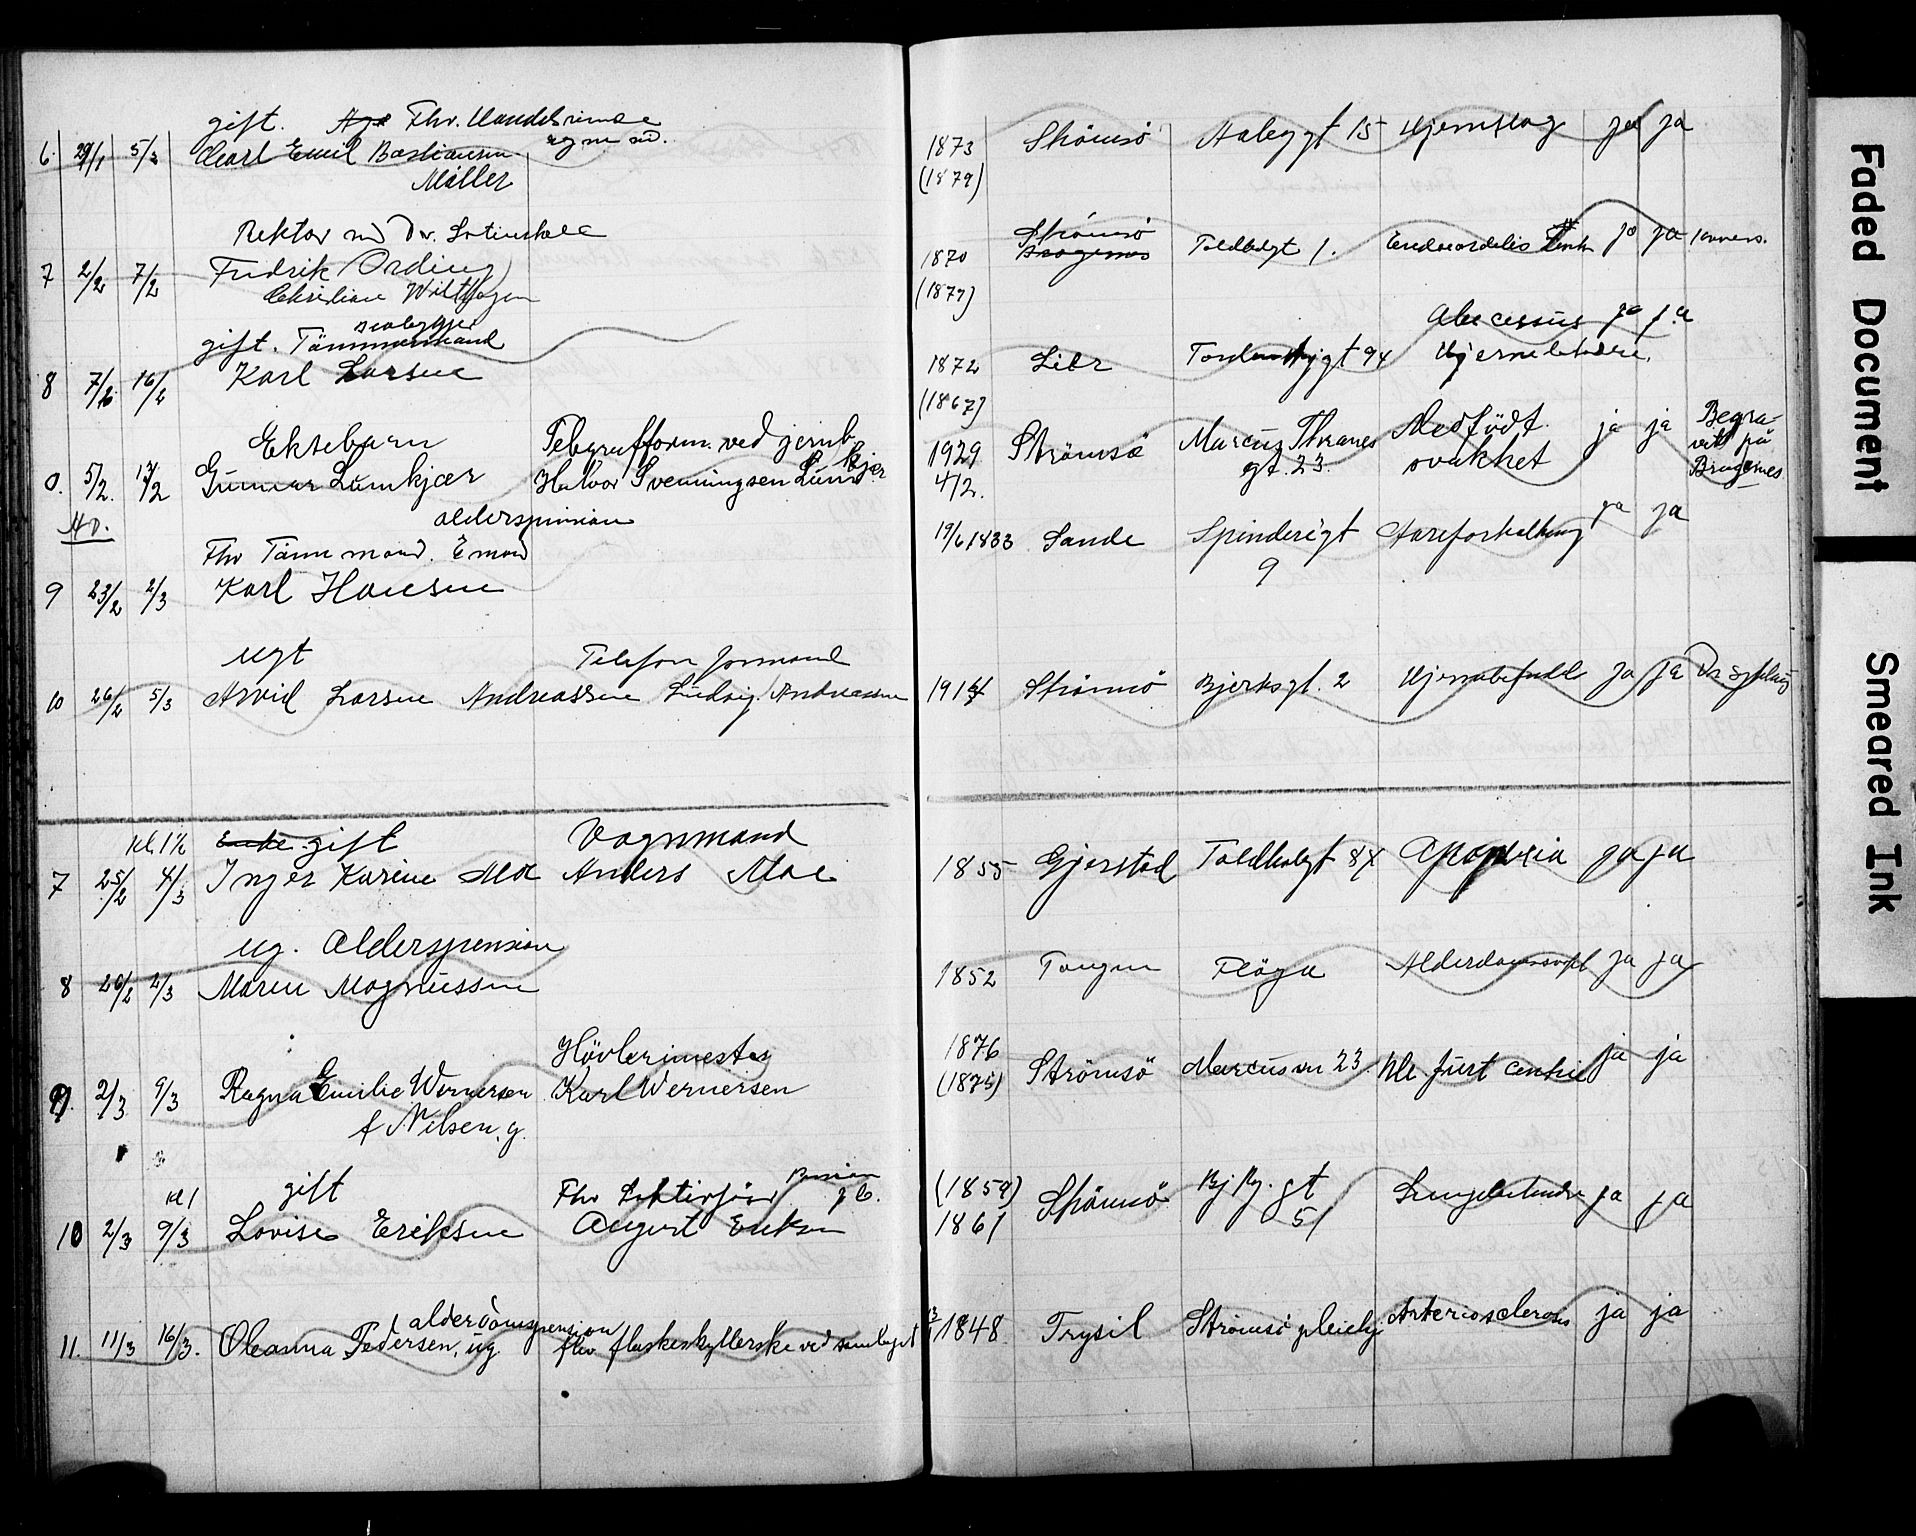 gift. Fhv. Handelsreisde
6. 29/1 5/3 Carl Emil Bastiansen 1873 Strömsö Aabygt 15 Hjerneslag ja ja
Møller (1879)
Rektor ved Dr. Latinskole Strömsö
7 2/2 7/2 Fredrik Ording 1870 Bragernes Toldbdgt 1. Endocarditis ja ja
Christian Wilthagen (1877)
gift. Tömmermand Abscessus ja ja
8 7/2 16/2 Karl Larsen 1872 Lier Tordenskjgt 94 Hjernebetændelse.
(1867)
Ektebarn Telegrafform. ved jernb. 1929 Strömsö Marcus Thranes Medfödt ja ja Begra-
0. 5/2. 12/2 Gunnar Lumkjær Halvor Svenningsen Lumkjær 4/2. gt. 23. svakhet vet på
Bragernes
alderspension
Fhv Tömmermand. Emand 19/6 1833 Sande Spinderigt Aareforkalkning ja ja
9 23/2 2/3 Karl Hansen 9
ugt Telefon formand
10 26/2 5/3 Arvid Larsen Andreassen Ludvig Andreassen 1914 Strömsö Bjerksgt. 2 ja ja
kl. 1½ Enke gift Vognmand
7 25/2 4/3 Inger Karine Moe Anders Moe 1855 Gjerstad Toldbdgt 84 Apoplexia ja ja
ug. Alderspension
8 26/2 2/3 Maren Magnussen 1852 Tangen Flöya ja ja
Hövlerimester 1876
9. 2/3 9/3 Ragna Emilie Wernersen Karl Wernersen (1875) Strömsö Marcus 23 ja ja
f Nilsen, g.
kl 1 gift Fhv (1859) Strömsö Bj Bj. gt Lungebetendse ja ja
10 2/3 9/3 Lovise Eriksen August Eriksen 1861 51
alderdomspension
11. 11/3 16/3. Oleanna Pedersen, ug. fhv flaskeskyllerske ved samlaget 1848 Trysil Strömsö pleiehj Arteriosclerosis ja ja
Faded Document
Smeared Ink